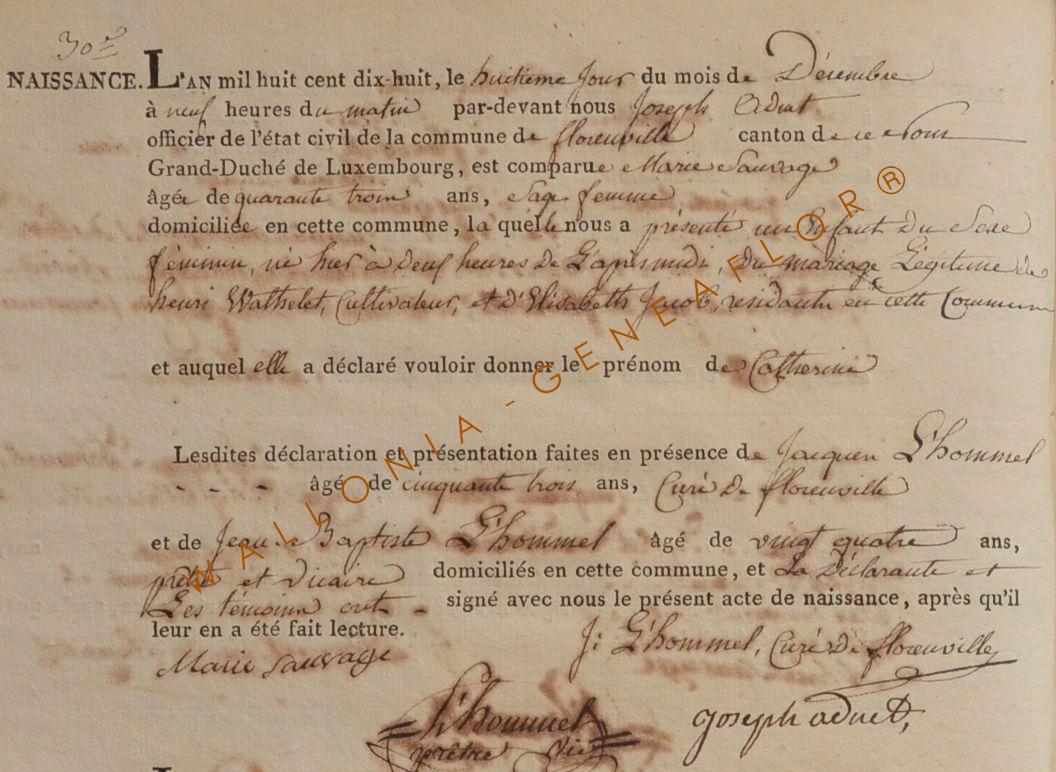 30e
NAISSANCE. L'AN mil huit cent dix-huit, le huitieme jour du mois de Décembre
à neuf heures du matin par-devant nous Joseph Adnet
officier de l'état civil de la commune de florenville canton de ce nom
Grand-Duché de Luxembourg, est comparue Marie Sauvage
âgée de quarante trois ans, Sage femme
domiciliée en cette commune, la quelle nous a présenté un Enfant du Sexe
féminin, né hier à deux heures de L'après midi, du mariage Légitime de
henri Wathelet, Cultivateur, et d'Elisabeth Jacob, residants en cette Commune
et auquel elle a déclaré vouloir donner le prénom de Catherine
Lesdites déclaration et présentation faites en présence de Jacques L'hommel
- - - âgé de cinquante trois ans, Curé de florenville
et de Jean Baptiste L'hommel âgé de vingt quatre ans,
prêtre et vicaire domiciliés en cette commune, et La Déclarante et
Les témoins ont - signé avec nous le présent acte de naissance, après qu'il
leur en a été fait lecture.
J: L'hommel, Curé de florenville
Marie Sauvage
L'hommel
prêtre vic
joseph adnet,
WALLONIA - GENEAFLOR ®